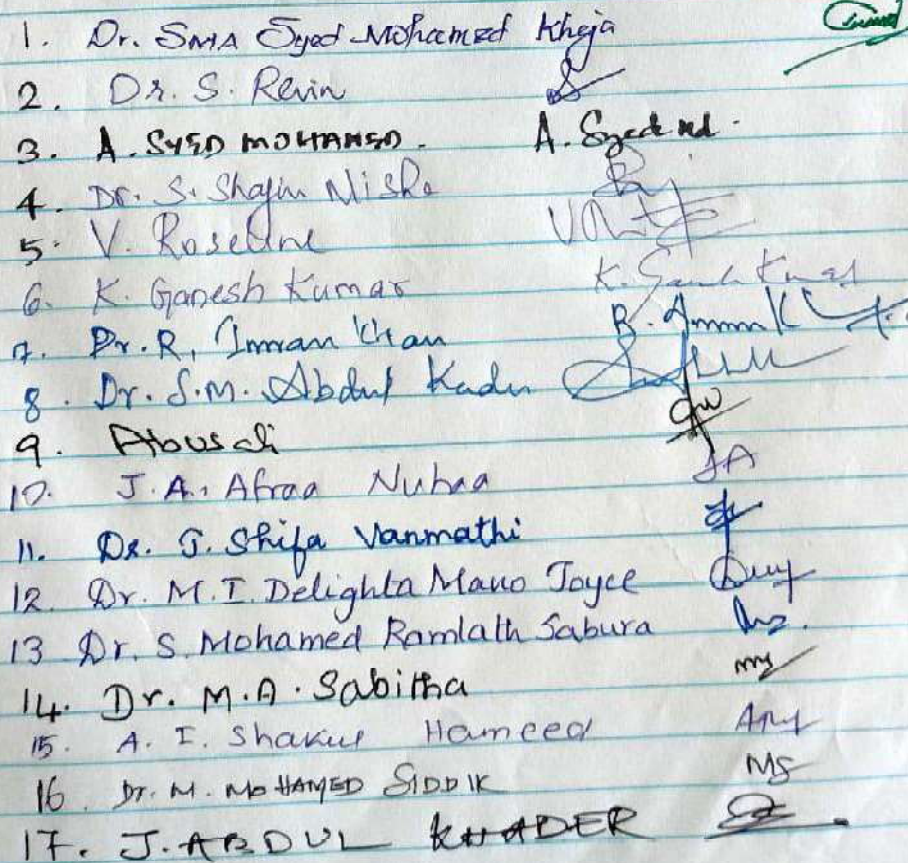 1. Dr. SMA Syed Mohamed Khaja
2. Dr. S. Revin
3. A. SYED MOHAMED. A. Syed md.
4. Dr. S. Shajun Nisha
5. V. Roseline
6. K. Ganesh Kumar K. Ganesh Kumar
7. Dr. R. Imran Khan R. Imran K
8. Dr. S.M. Abdul Kader
9. Abusali
10. J.A. Afraa Nuhaa JA
11. Dr. J. Shifa Vanmathi
12. Dr. M.I. Delighta Mano Joyce
13 Dr. S. Mohamed Ramlath Sabura
14. Dr. M.A. Sabitha
15. A. I. Shakul Hameed
16. Dr. M. MOHAMED SIDDIK MS
17. J. ABDUL KHADER